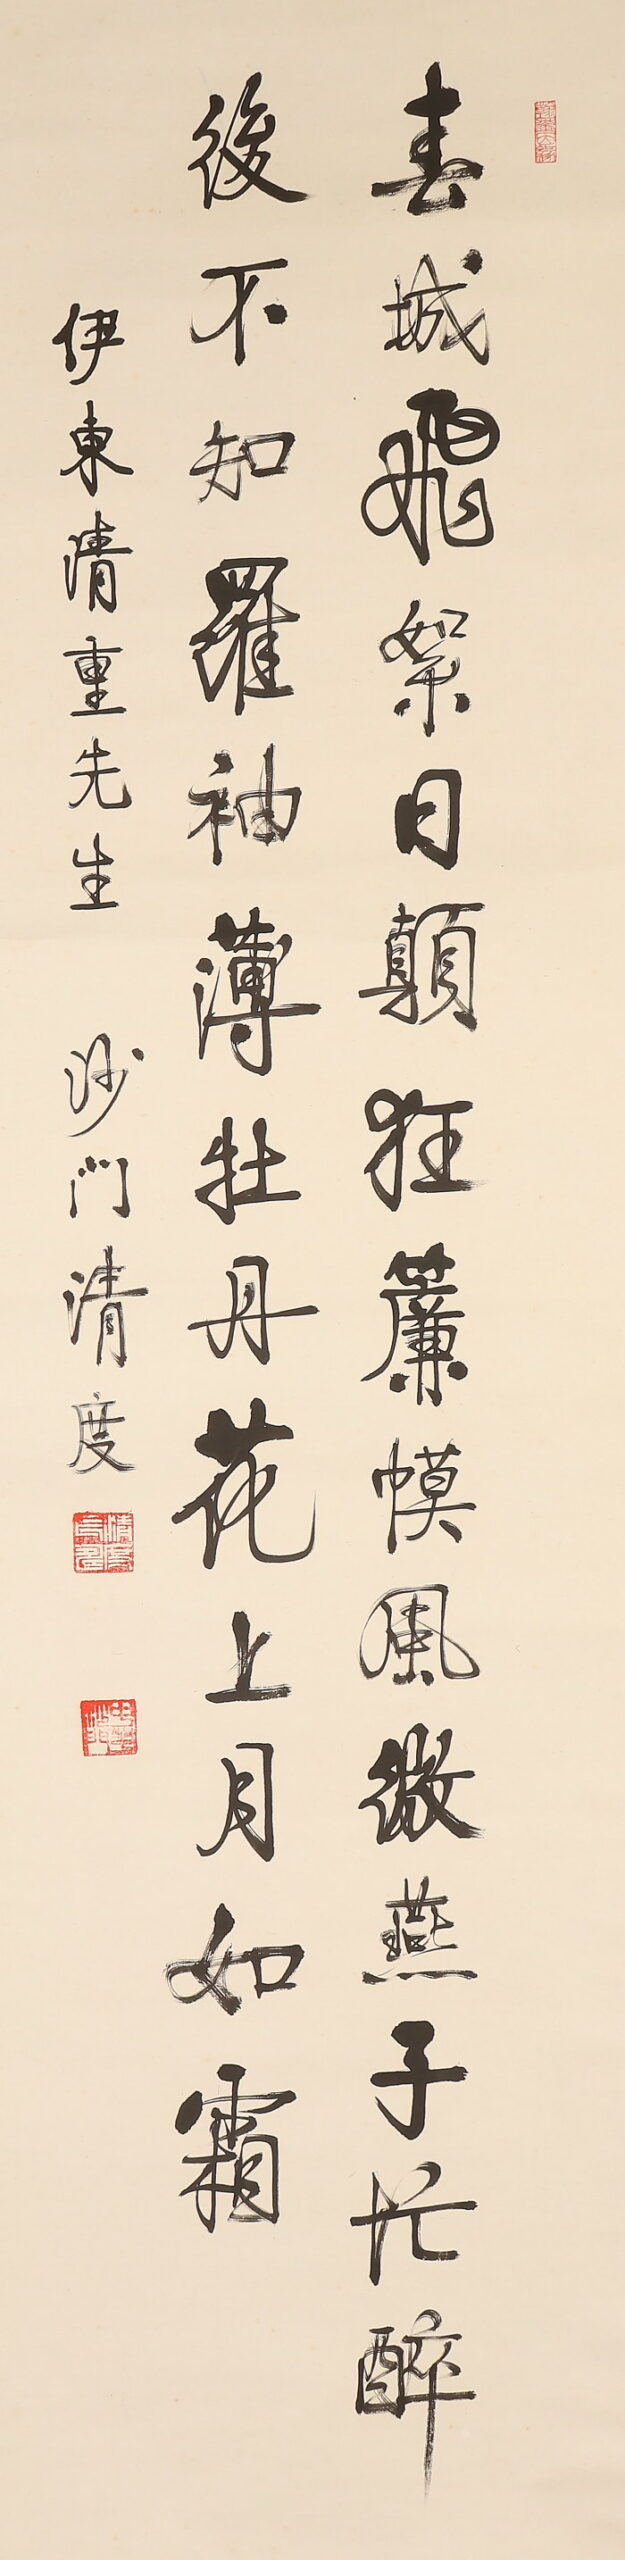 春城飛絮日顛狂簾幙風微燕子忙醉
後不知羅袖薄牡丹花上月如霜
伊東清重先生
沙門清度